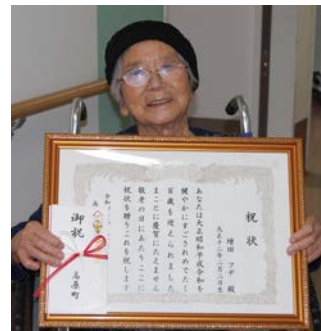 祝状
増田 フヂ 殿
大正十二年二月二日生
あなたは大正昭和平成令和を
健やかにすごされめでたく
百歳を迎えられました
まことに慶賀にたえません
敬老の日にあたりここに
祝状を贈りこれを祝します
令和
御祝
高原町